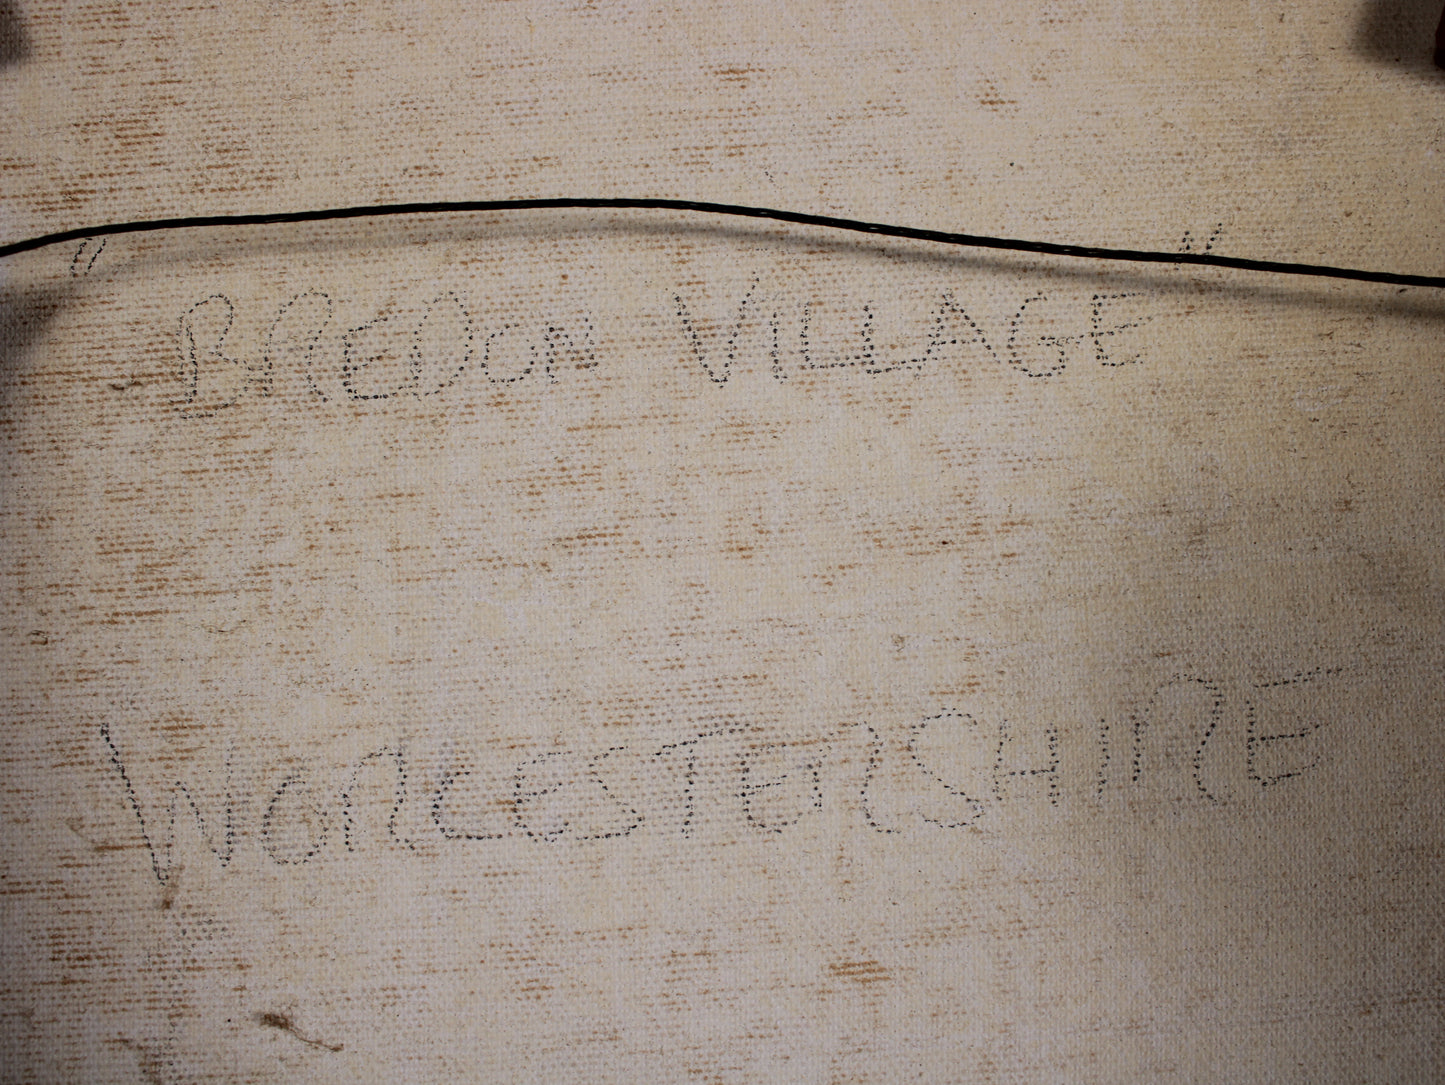 "BREDON VILLAGE"
WORCESTERSHIRE